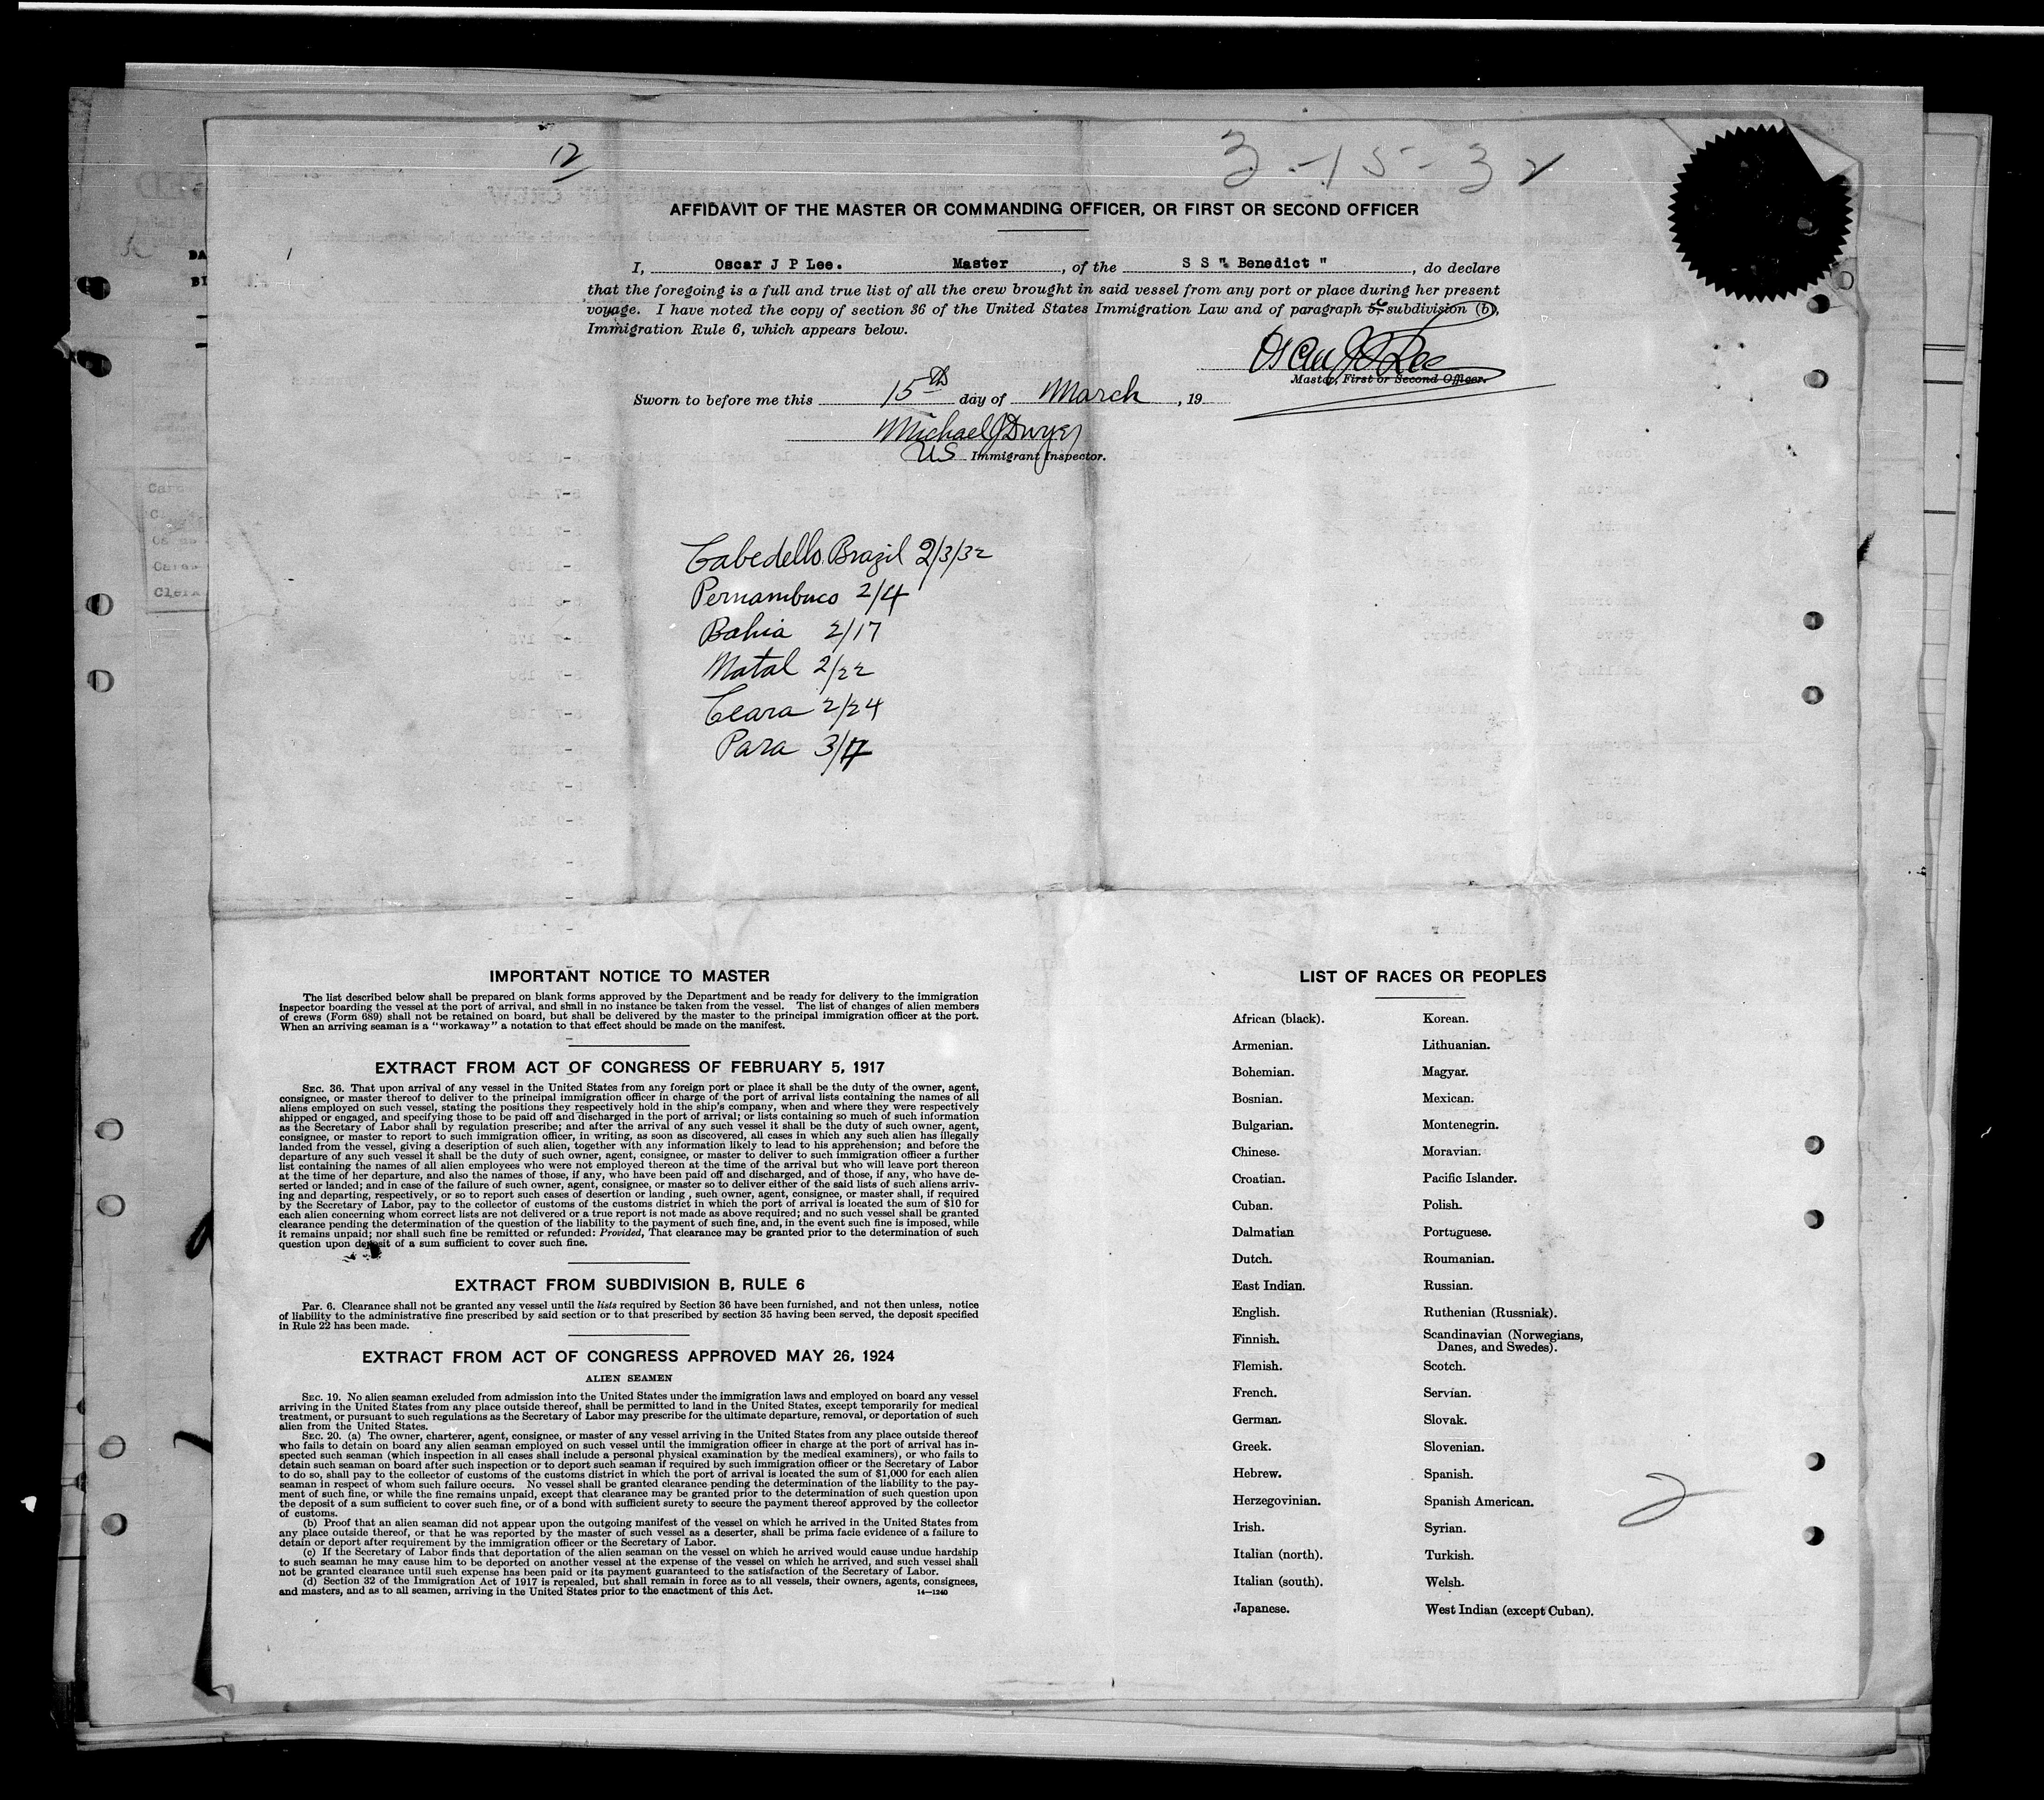 12
3-15-32
AFFIDAVIT OF THE MASTER OR COMMANDING OFFICER, OR FIRST OR SECOND OFFICER
I, Oscar J P Lee. Master, of the S S " Benedict ", do declare
that the foregoing is a full and true list of all the crew brought in said vessel from any port or place during her present
voyage. I have noted the copy of section 36 of the United States Immigration Law and of paragraph 6 subdivision (b),
Immigration Rule 6, which appears below.
Oscar J P Lee
Master, First or Second Officer.
Sworn to before me this 15th day of March, 19
Michael J Dwyer
US Immigrant Inspector.
Cabedello Brazil 2/3/32
Pernambuco 2/4
Bahia 2/17
Natal 2/22
Ceara 2/24
Para 3/
IMPORTANT NOTICE TO MASTER
The list described below shall be prepared on blank forms approved by the Department and be ready for delivery to the immigration
inspector boarding the vessel at the port of arrival, and shall in no instance be taken from the vessel. The list of changes of alien members
of crews (Form 689) shall not be retained on board, but shall be delivered by the master to the principal immigration officer at the port.
When an arriving seaman is a "workaway" a notation to that effect should be made on the manifest.
EXTRACT FROM ACT OF CONGRESS OF FEBRUARY 5, 1917
SEC. 36. That upon arrival of any vessel in the United States from any foreign port or place it shall be the duty of the owner, agent,
consignee, or master thereof to deliver to the principal immigration officer in charge of the port of arrival lists containing the names of all
aliens employed on such vessel, stating the positions they respectively hold in the ship's company, when and where they were respectively
shipped or engaged, and specifying those to be paid off and discharged in the port of arrival; or lists containing so much of such information
as the Secretary of Labor shall by regulation prescribe; and after the arrival of any such vessel it shall be the duty of such owner, agent,
consignee, or master to report to such immigration officer, in writing, as soon as discovered, all cases in which any such alien has illegally
landed from the vessel, giving a description of such alien, together with any information likely to lead to his apprehension; and before the
departure of any such vessel it shall be the duty of such owner, agent, consignee, or master to deliver to such immigration officer a further
list containing the names of all alien employees who were not employed thereon at the time of the arrival but who will leave port thereon
at the time of her departure, and also the names of those, if any, who have been paid off and discharged, and of those, if any, who have de-
serted or landed; and in case of the failure of such owner, agent, consignee, or master so to deliver either of the said lists of such aliens arriv-
ing and departing, respectively, or so to report such cases of desertion or landing , such owner, agent, consignee, or master shall, if required
by the Secretary of Labor, pay to the collector of customs of the customs district in which the port of arrival is located the sum of $10 for
each alien concerning whom correct lists are not delivered or a true report is not made as above required; and no such vessel shall be granted
clearance pending the determination of the question of the liability to the payment of such fine, and, in the event such fine is imposed, while
it remains unpaid; nor shall such fine be remitted or refunded: Provided, That clearance may be granted prior to the determination of such
question upon deposit of a sum sufficient to cover such fine.
EXTRACT FROM SUBDIVISION B, RULE 6
Par. 6. Clearance shall not be granted any vessel until the lists required by Section 36 have been furnished, and not then unless, notice
of liability to the administrative fine prescribed by said section or to that prescribed by section 35 having been served, the deposit specified
in Rule 22 has been made.
EXTRACT FROM ACT OF CONGRESS APPROVED MAY 26, 1924
ALIEN SEAMEN
SEC. 19. No alien seaman excluded from admission into the United States under the immigration laws and employed on board any vessel
arriving in the United States from any place outside thereof, shall be permitted to land in the United States, except temporarily for medical
treatment, or pursuant to such regulations as the Secretary of Labor may prescribe for the ultimate departure, removal, or deportation of such
alien from the United States.
SEC. 20. (a) The owner, charterer, agent, consignee, or master of any vessel arriving in the United States from any place outside thereof
who fails to detain on board any alien seaman employed on such vessel until the immigration officer in charge at the port of arrival has in-
spected such seaman (which inspection in all cases shall include a personal physical examination by the medical examiners), or who fails to
detain such seaman on board after such inspection or to deport such seaman if required by such immigration officer or the Secretary of Labor
to do so, shall pay to the collector of customs of the customs district in which the port of arrival is located the sum of $1,000 for each alien
seaman in respect of whom such failure occurs. No vessel shall be granted clearance pending the determination of the liability to the pay-
ment of such fine, or while the fine remains unpaid, except that clearance may be granted prior to the determination of such question upon
the deposit of a sum sufficient to cover such fine, or of a bond with sufficient surety to secure the payment thereof approved by the collector
of customs.
(b) Proof that an alien seaman did not appear upon the outgoing manifest of the vessel on which he arrived in the United States from
any place outside thereof, or that he was reported by the master of such vessel as a deserter, shall be prima facie evidence of a failure to
detain or deport after requirement by the immigration officer or the Secretary of Labor.
(c) If the Secretary of Labor finds that deportation of the alien seaman on the vessel on which he arrived would cause undue hardship
to such seaman he may cause him to be deported on another vessel at the expense of the vessel on which he arrived, and such vessel shall
not be granted clearance until such expense has been paid or its payment guaranteed to the satisfaction of the Secretary of Labor.
(d) Section 32 of the Immigration Act of 1917 is repealed, but shall remain in force as to all vessels, their owners, agents, consignees,
and masters, and as to all seamen, arriving in the United States prior to the enactment of this Act.
14—1240
LIST OF RACES OR PEOPLES
African (black). Korean.
Armenian. Lithuanian.
Bohemian. Magyar.
Bosnian. Mexican.
Bulgarian. Montenegrin.
Chinese. Moravian.
Croatian. Pacific Islander.
Cuban. Polish.
Dalmatian Portuguese.
Dutch. Roumanian.
East Indian. Russian.
English. Ruthenian (Russniak).
Finnish. Scandinavian (Norwegians,
Danes, and Swedes).
Flemish. Scotch.
French. Servian.
German. Slovak.
Greek. Slovenian.
Hebrew. Spanish.
Herzegovinian. Spanish American.
Irish. Syrian.
Italian (north). Turkish.
Italian (south). Welsh.
Japanese. West Indian (except Cuban).
2